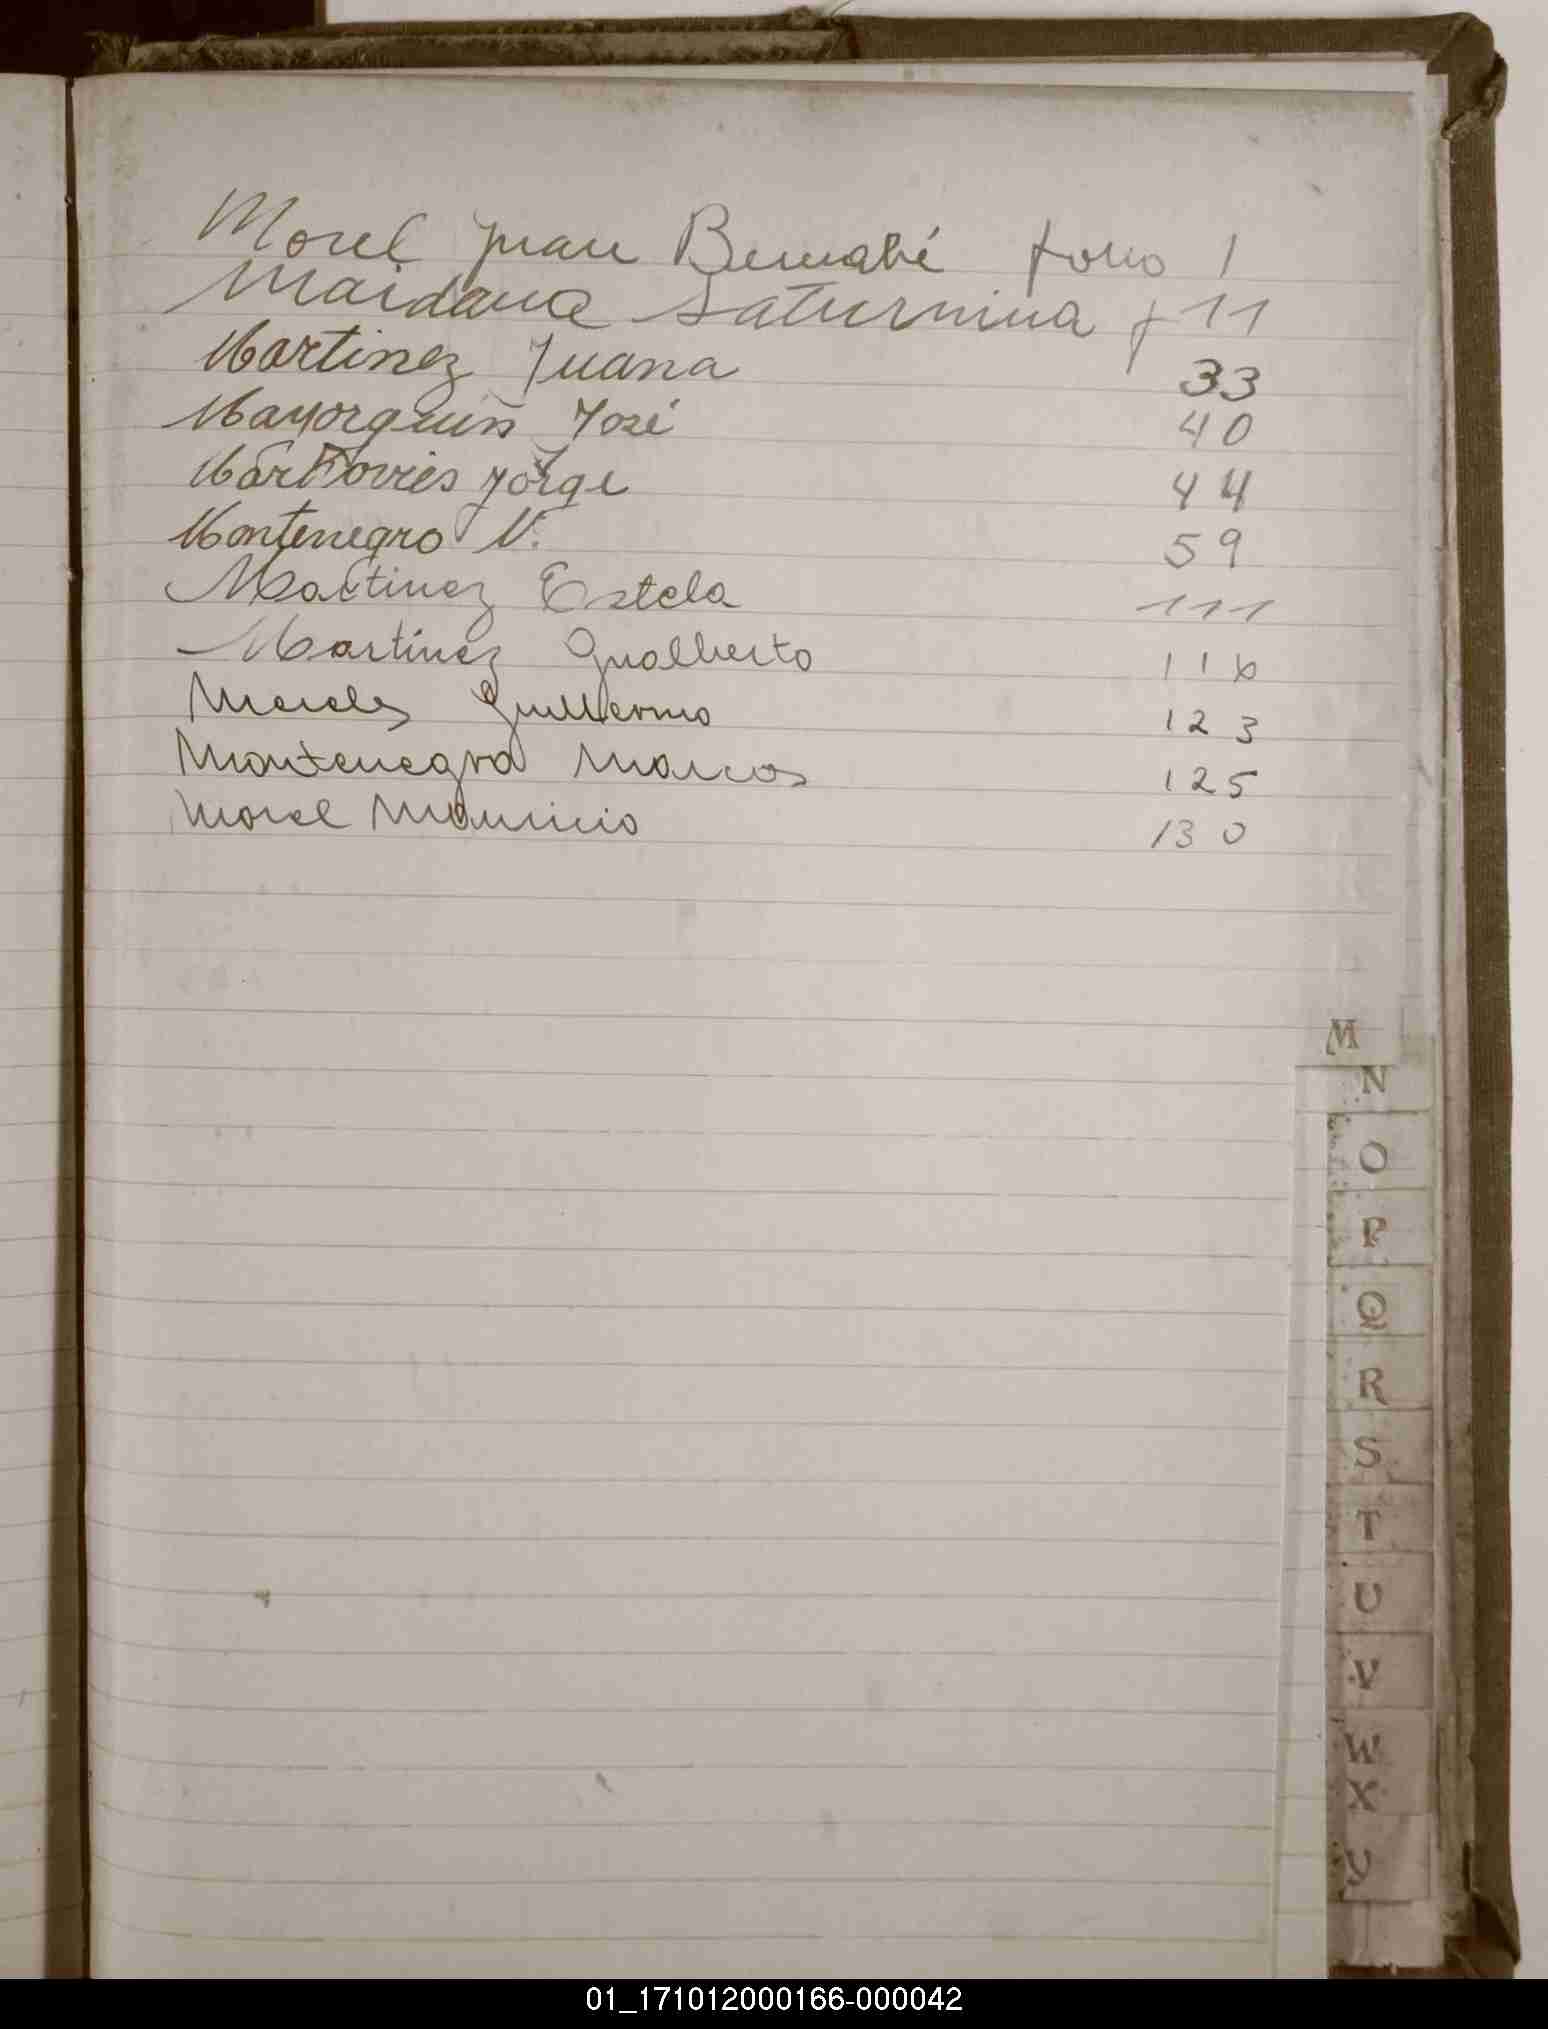 Morel Juan Bernabé folio 1
Maidana Saturnina f 11
Martinez Juana 33
Mayorquin José 40
Jorge 44
Montenegro N. 59
Martinez Estela 111
Martinez Gualberto 116
Guillermo 123
Montenegro Marcos 125
Morel Mauricio 130
M
N
O
P
Q
R
S
T
U
V
W
X
Y
01_171012000166-000042